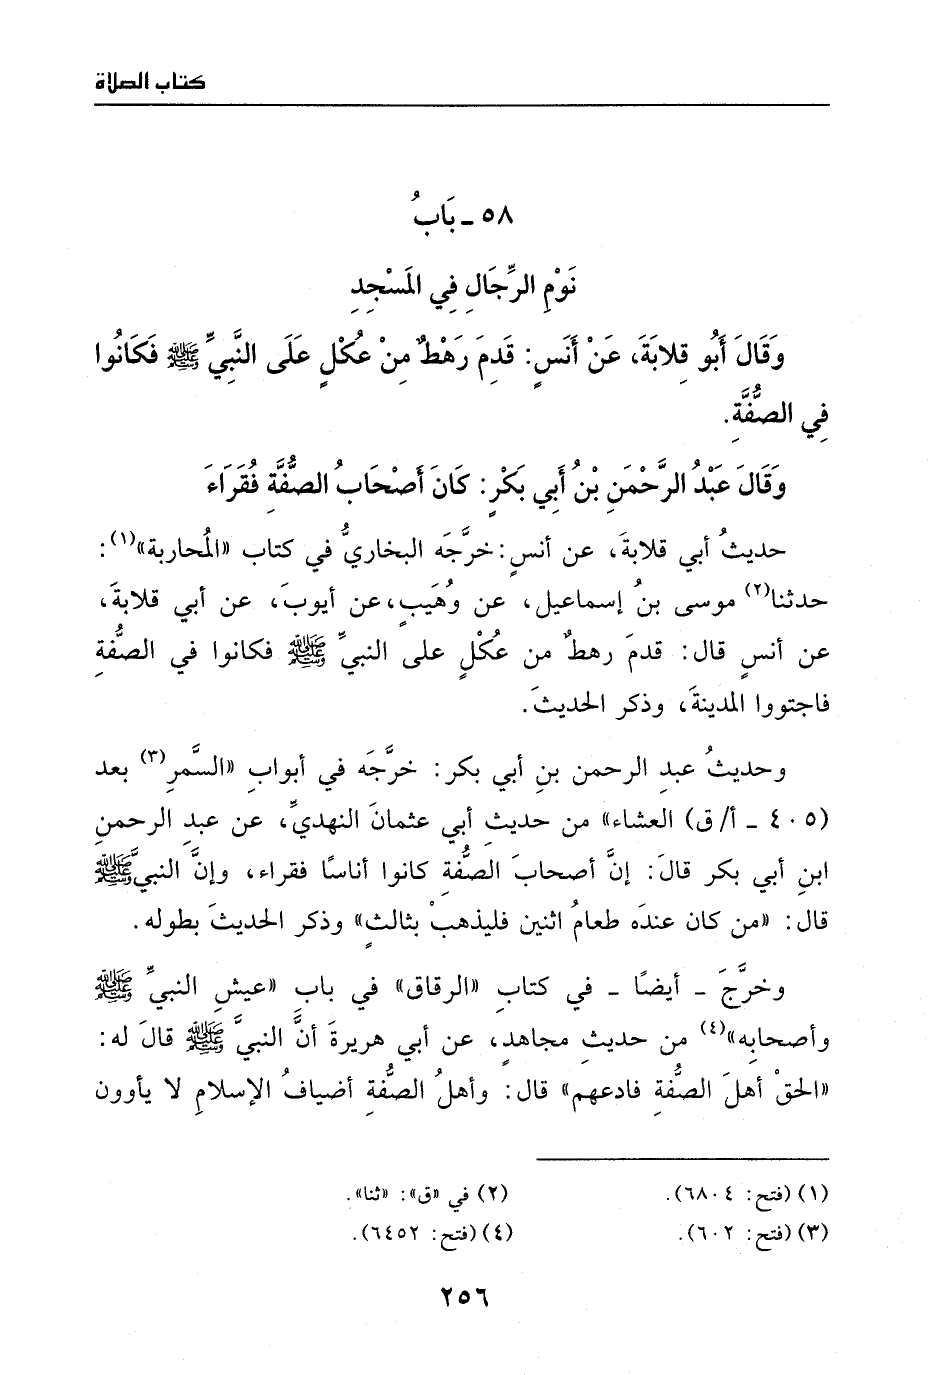 كتاب الصلاة
٥٨ ـ بَابُ
نَوْمِ الرِّجَالِ فِي المَسْجِدِ
وَقَالَ أَبُو قِلابَةَ، عَنْ أَنَسٍ: قَدِمَ رَهْطٌ مِنْ عُكْلٍ عَلَى النَّبِيِّ ﷺ فَكَانُوا
فِي الصُّفَّةِ.
وَقَالَ عَبْدُ الرَّحْمَنِ بْنُ أَبِي بَكْرٍ: كَانَ أَصْحَابُ الصُّفَّةِ فُقَرَاءَ
حديثُ أبي قلابةَ، عن أنسٍ: خرَّجَه البخاريُّ في كتاب «المُحاربة»(١):
حدثنا(٢) موسى بنُ إسماعيل، عن وُهَيبٍ، عن أيوبَ، عن أبي قلابةَ،
عن أنسٍ قال: قدمَ رهطٌ من عُكْلٍ على النبيِّ ﷺ فكانوا في الصُّفةِ
فاجتووا المدينةَ، وذكر الحديثَ.
وحديثُ عبدِ الرحمن بنِ أبي بكر: خرَّجَه في أبوابِ «السَّمرِ(٣) بعد
(٤٠٥ ـ أ/ ق) العشاء» من حديثِ أبي عثمانَ النهديِّ، عن عبدِ الرحمنِ
ابنِ أبي بكر قالَ: إنَّ أصحابَ الصُّفةِ كانوا أناسًا فقراء، وإنَّ النبيَّ ﷺ
قال: «من كان عندَه طعامُ اثنين فليذهبْ بثالثٍ» وذكر الحديثَ بطوله.
وخرَّجَ ـ أيضًا ـ في كتابِ «الرقاق» في بابِ «عيشِ النبيِّ ﷺ
وأصحابِه»(٤) من حديثِ مجاهدٍ، عن أبي هريرةَ أنَّ النبيَّ ﷺ قالَ له:
«الحقْ أهلَ الصُّفةِ فادعهم» قال: وأهلُ الصُّفةِ أضيافُ الإسلامِ لا يأوون
(١) (فتح: ٦٨٠٤).
(٢) في «ق»: «ثنا».
(٣) (فتح: ٦٠٢).
(٤) (فتح: ٦٤٥٢).
٢٥٦